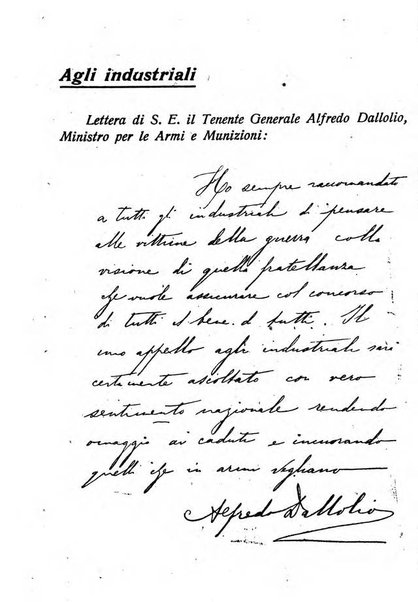 Agli industriali
Lettera di S. E. il Tenente Generale Alfredo Dallolio,
Ministro per le Armi e Munizioni:
Ho sempre raccomandato
a tutti gli industriali di pensare
alle vittime della guerra colla
visione di quella fratellanza
che vuole assicurare col concorso
di tutti il bene di tutti. Il
mio appello agli industriali sarà
certamente ascoltato con vero
sentimento nazionale rendendo
omaggio ai caduti e incuorando
quelli che in armi vegliano
Alfredo Dallolio